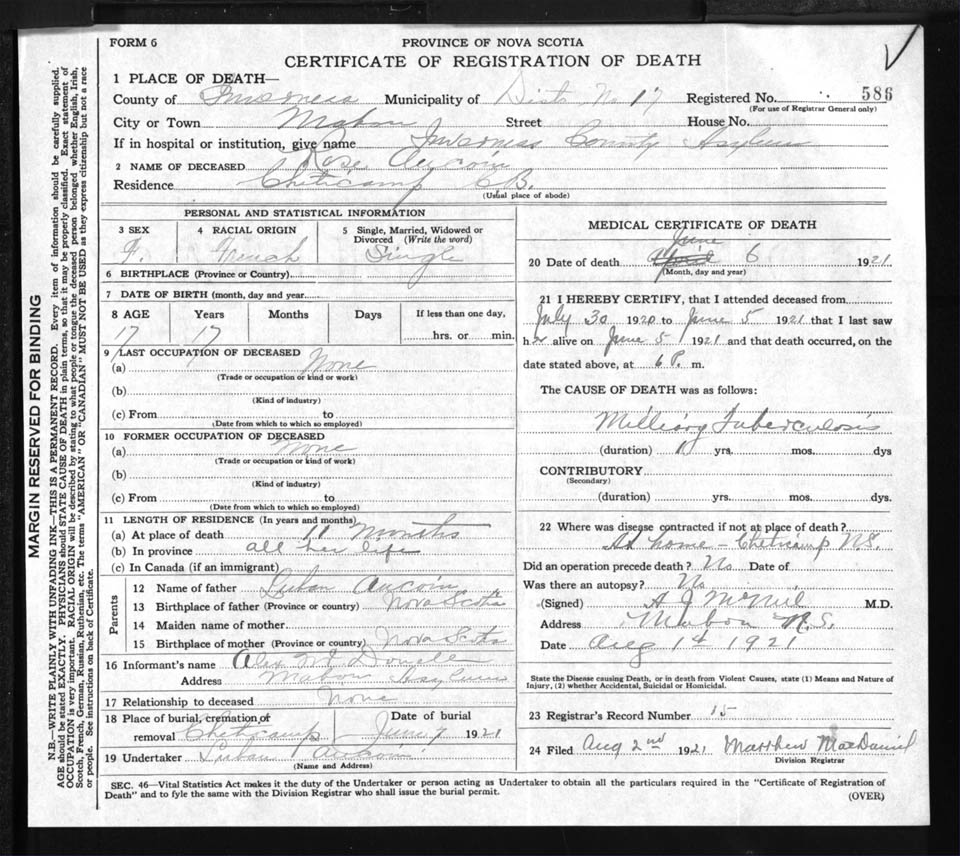 FORM 6
PROVINCE OF NOVA SCOTIA
CERTIFICATE OF REGISTRATION OF DEATH
1 PLACE OF DEATH—
County of Inverness Municipality of Dist No 17 Registered No. 586
(For use of Registrar General only)
City or Town Mabou Street House No.
If in hospital or institution, give name Inverness County Asylum
2 NAME OF DECEASED Rose Aucoin
Residence Cheticamp C B.
(Usual place of abode)
PERSONAL AND STATISTICAL INFORMATION
3 SEX
F.
4 RACIAL ORIGIN
French
5 Single, Married, Widowed or
Divorced (Write the word)
Single
6 BIRTHPLACE (Province or Country)
7 DATE OF BIRTH (month, day and year
8 AGE Years Months Days If less than one day,
17 17 hrs. or min.
9 LAST OCCUPATION OF DECEASED
(a) None
(Trade or occupation or kind or work)
(b)
(Kind of industry)
(c) From to
(Date from which to which so employed)
10 FORMER OCCUPATION OF DECEASED
(a) None
(Trade or occupation or kind of work)
(b)
(Kind of industry)
(c) From to
(Date from which to which so employed)
11 LENGTH OF RESIDENCE (In years and months)
(a) At place of death 11 Months
(b) In province all her life
(c) In Canada (if an immigrant)
Parents
12 Name of father Luban Aucoin
13 Birthplace of father (Province or country) Nova Scotia
14 Maiden name of mother
15 Birthplace of mother (Province or country) Nova Scotia
16 Informant's name Alex Mc Donell
Address Mabou Asylum
17 Relationship to deceased None
18 Place of burial, cremation or
removal Cheticamp
Date of burial
June 7 1921
19 Undertaker Luban Aucoin
(Name and Address)
MEDICAL CERTIFICATE OF DEATH
June
20 Date of death April 6 1921
(Month, day and year)
21 I HEREBY CERTIFY, that I attended deceased from
July 30 1920 to June 5 1921 that I last saw
her alive on June 5 1921 and that death occurred, on the
date stated above, at 6 P. m.
The CAUSE OF DEATH was as follows:
Milliary Tuberculosis
(duration) 1 yrs. mos. dys
CONTRIBUTORY
(Secondary)
(duration) yrs. mos. dys.
22 Where was disease contracted if not at place of death?
At home - Cheticamp N.S.
Did an operation precede death? No Date of
Was there an autopsy? No
(Signed) A J McNeil M.D.
Address Mabou N.S.
Date Aug 1st 1921
State the Disease causing Death, or in death from Violent Causes, state (1) Means and Nature of
Injury, (2) whether Accidental, Suicidal or Homicidal.
23 Registrar's Record Number 15
24 Filed Aug 2nd 1921 Matthew MacDaniel
Division Registrar
SEC. 46—Vital Statistics Act makes it the duty of the Undertaker or person acting as Undertaker to obtain all the particulars required in the "Certificate of Registration of
Death" and to fyle the same with the Division Registrar who shall issue the burial permit.
(OVER)
MARGIN RESERVED FOR BINDING
N.B.—WRITE PLAINLY WITH UNFADING INK—THIS IS A PERMANENT RECORD. Every item of information should be carefully supplied.
AGE should be stated EXACTLY. PHYSICIANS should STATE CAUSE OF DEATH in plain terms, so that it may be properly classified. Exact statement of
OCCUPATION is very important. RACIAL ORIGIN will be described by stating to what people or tongue the deceased person belonged whether English, Irish,
Scotch, French, German, Russian, Ruthenian, etc. The terms "AMERICAN" OR "CANADIAN" MUST NOT BE USED as they express citizenship but not a race
or people. See instructions on back of Certificate.